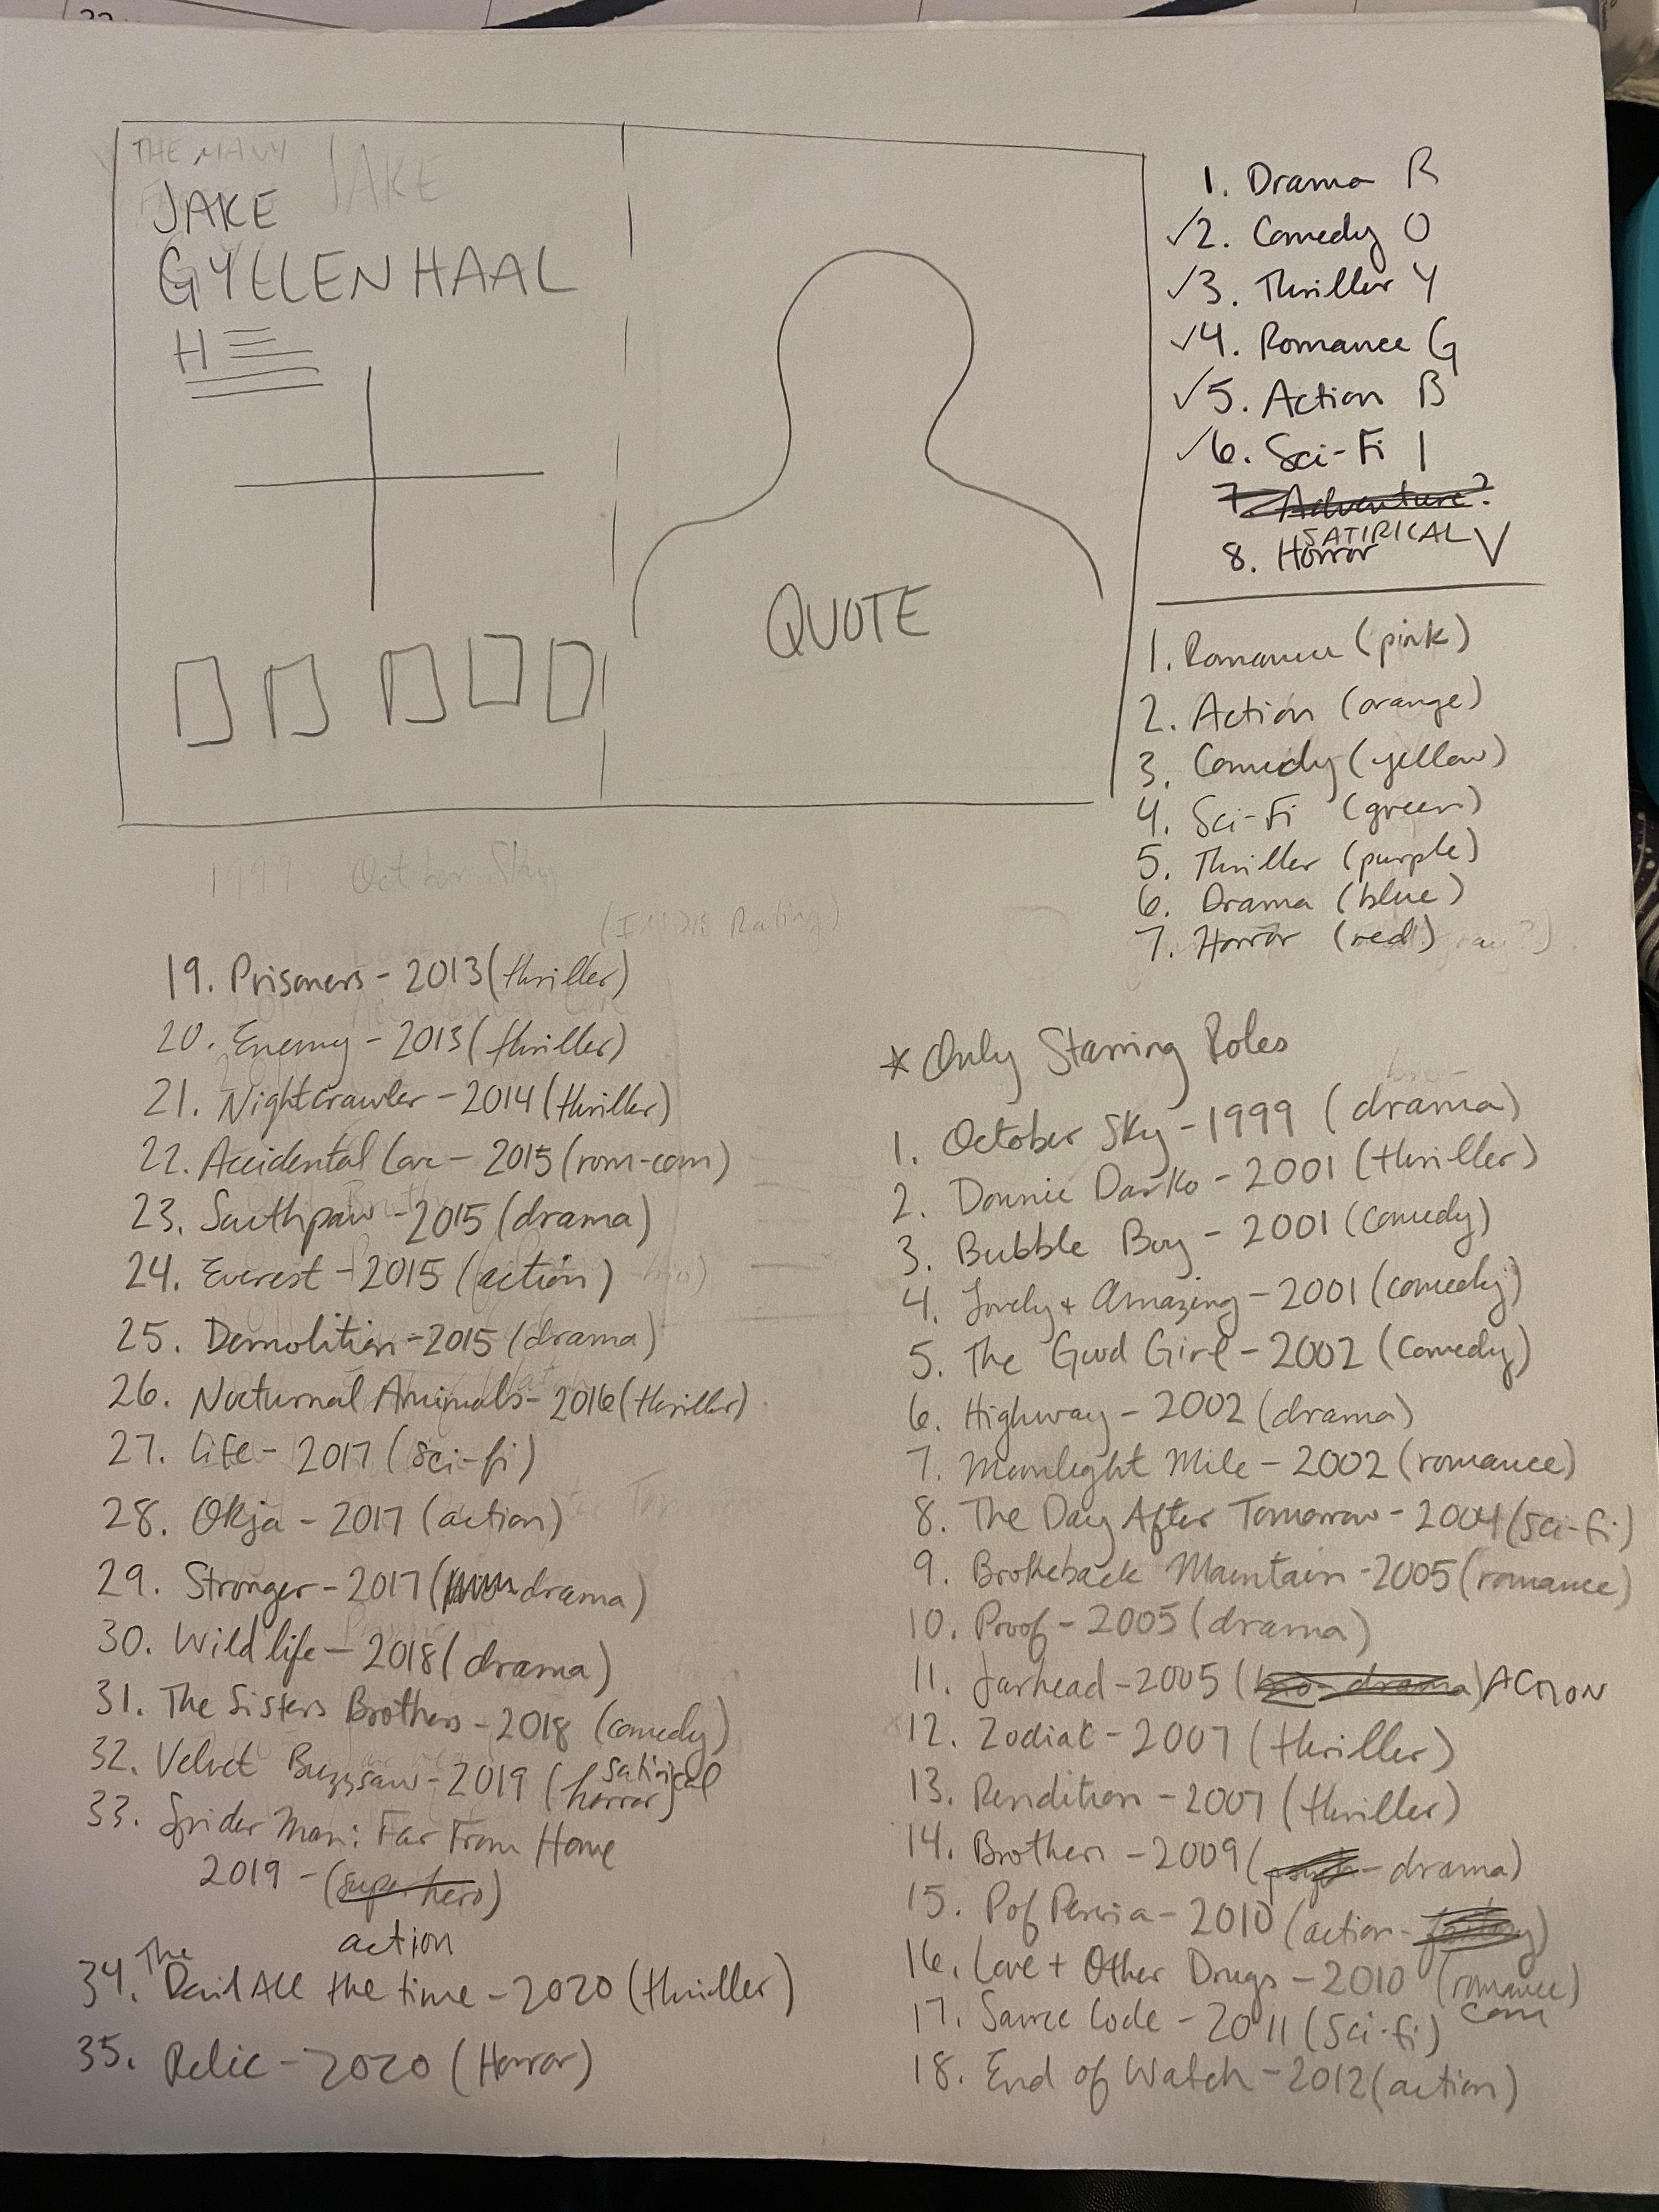 THE MANY
JAKE
JAKE
GYLLENHAAL
H
QUOTE
1. Drama R
✓2. Comedy O
✓3. Thriller Y
✓4. Romance G
✓5. Action B
✓6. Sci-Fi I
7. Adventure?
SATIRICAL
8. Horror V
1. Romance (pink)
2. Action (orange)
3. Comedy (yellow)
4. Sci-Fi (green)
5. Thriller (purple)
6. Drama (blue)
7. Horror (red)
1999 October Sky
(IMDB Rating)
* Only Starring Roles
1. October Sky - 1999 (drama)
2. Donnie Darko - 2001 (thriller)
3. Bubble Boy - 2001 (comedy)
4. Lovely + Amazing - 2001 (comedy)
5. The Good Girl - 2002 (comedy)
6. Highway - 2002 (drama)
7. Moonlight Mile - 2002 (romance)
8. The Day After Tomorrow - 2004 (sci-fi)
9. Brokeback Mountain - 2005 (romance)
10. Proof - 2005 (drama)
11. Jarhead - 2005 (bio-drama) ACTION
12. Zodiac - 2007 (thriller)
13. Rendition - 2007 (thriller)
14. Brothers - 2009 (drama)
15. P of Persia - 2010 (action-fantasy)
16. Love + Other Drugs - 2010 (romance)
com
17. Source Code - 2011 (sci-fi)
18. End of Watch - 2012 (action)
19. Prisoners - 2013 (thriller)
20. Enemy - 2013 (thriller)
21. Nightcrawler - 2014 (thriller)
22. Accidental Love - 2015 (rom-com)
23. Southpaw - 2015 (drama)
24. Everest - 2015 (action)
25. Demolition - 2015 (drama)
26. Nocturnal Animals - 2016 (thriller)
27. Life - 2017 (sci-fi)
28. Okja - 2017 (action)
29. Stronger - 2017 (drama)
30. Wild life - 2018 (drama)
31. The Sisters Brothers - 2018 (comedy)
32. Velvet Buzzsaw - 2019 (satirical horror)
33. Spider Man: Far From Home
2019 - (superhero)
action
34. The Devil All the time - 2020 (thriller)
35. Relic - 2020 (Horror)